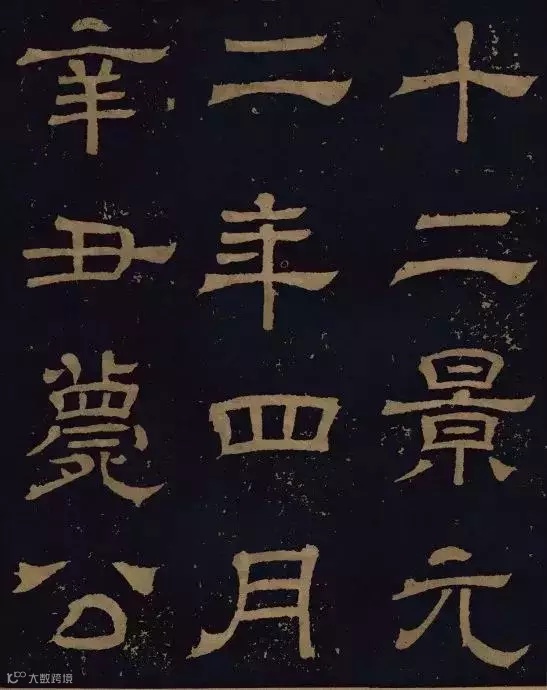 十二景元
二年四月
辛丑薨公
大数跨境